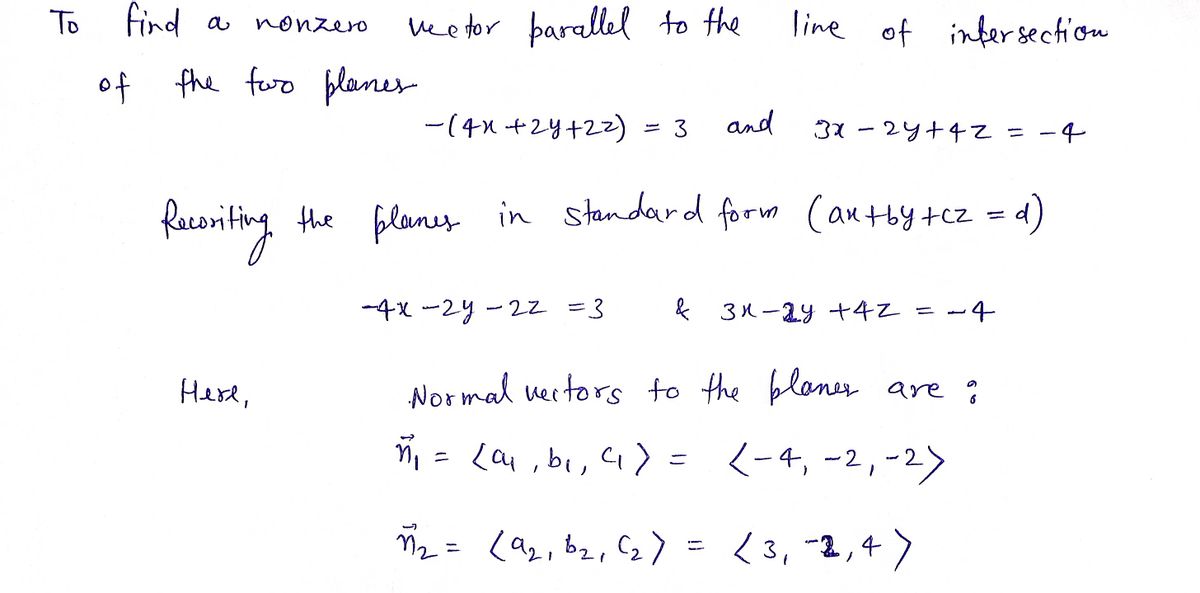 To find a nonzero vector parallel to the line of intersection
of the two planes
-(4x+2y+2z) = 3 and 3x-2y+4z = -4
Rewriting the planes in standard form (ax+by+cz = d)
-4x-2y-2z = 3 & 3x-2y+4z = -4
Here, Normal vectors to the planes are :
n⃗₁ = ⟨a₁, b₁, c₁⟩ = ⟨-4, -2, -2⟩
n⃗₂ = ⟨a₂, b₂, c₂⟩ = ⟨3, -2, 4⟩